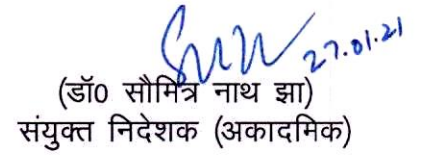 27.01.21
(डॉ0 सौमित्र नाथ झा)
संयुक्त निदेशक (अकादमिक)